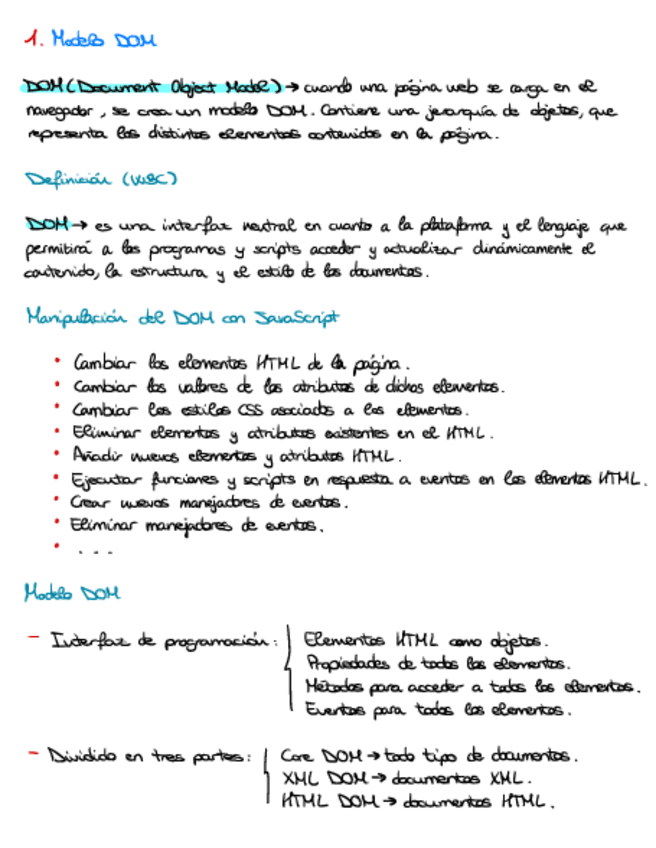 1. Modelo DOM
DOM (Document Object Model) → cuando una página web se carga en el
navegador, se crea un modelo DOM. Contiene una jerarquía de objetos, que
representa los distintos elementos contenidos en la página.
Definición (W3C)
DOM → es una interfaz neutral en cuanto a la plataforma y el lenguaje que
permitirá a los programas y scripts acceder y actualizar dinámicamente el
contenido, la estructura y el estilo de los documentos.
Manipulación del DOM con JavaScript
• Cambiar los elementos HTML de la página.
• Cambiar los valores de los atributos de dichos elementos.
• Cambiar los estilos CSS asociados a los elementos.
• Eliminar elementos y atributos existentes en el HTML.
• Añadir nuevos elementos y atributos HTML.
• Ejecutar funciones y scripts en respuesta a eventos en los elementos HTML.
• Crear nuevos manejadores de eventos.
• Eliminar manejadores de eventos.
• ...
Modelo DOM
- Interfaz de programación: Elementos HTML como objetos.
Propiedades de todos los elementos.
Métodos para acceder a todos los elementos.
Eventos para todos los elementos.
- Dividido en tres partes: Core DOM → todo tipo de documentos.
XML DOM → documentos XML.
HTML DOM → documentos HTML.